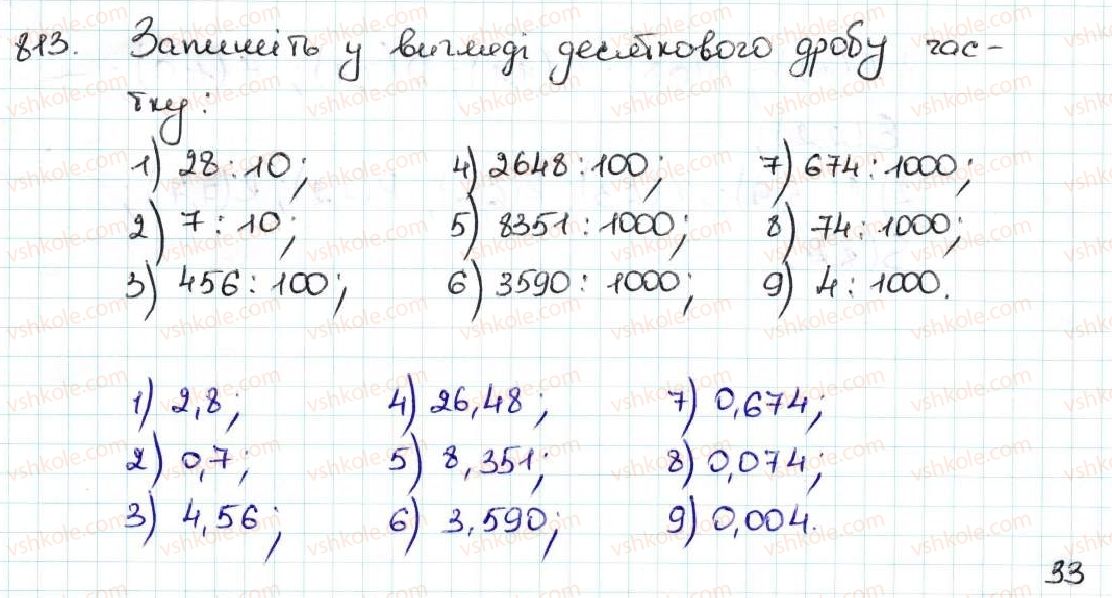 813. Запишіть у вигляді десяткового дробу час-
тку:
1) 28 : 10; 4) 2648 : 100; 7) 674 : 1000;
2) 7 : 10; 5) 8351 : 1000; 8) 74 : 1000;
3) 456 : 100; 6) 3590 : 1000; 9) 4 : 1000.
1) 2,8; 4) 26,48; 7) 0,674;
2) 0,7; 5) 8,351; 8) 0,074;
3) 4,56; 6) 3,590; 9) 0,004.
33
vshkole.com